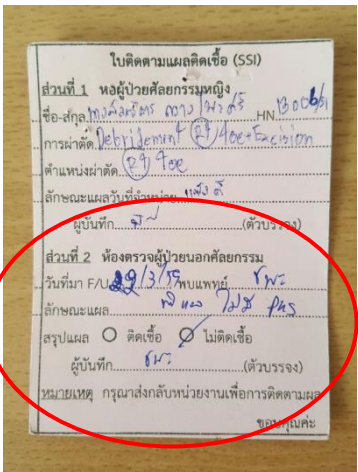 ใบติดตามแผลติดเชื้อ (SSI)
ส่วนที่ 1 หอผู้ป่วยศัลยกรรมหญิง
ชื่อ-สกุล HN.
การผ่าตัด Debridement Rt toe + Excision
ตำแหน่งผ่าตัด Rt Toe
ลักษณะแผลวันที่จำหน่าย แห้งดี
ผู้บันทึก (ตัวบรรจง)
ส่วนที่ 2 ห้องตรวจผู้ป่วยนอกศัลยกรรม
วันที่มา F/U /3/59 พบแพทย์
ลักษณะแผล ไม่มี pus
สรุปแผล ติดเชื้อ ไม่ติดเชื้อ
ผู้บันทึก (ตัวบรรจง)
หมายเหตุ กรุณาส่งกลับหน่วยงานเพื่อการติดตามผล
ขอบคุณค่ะ